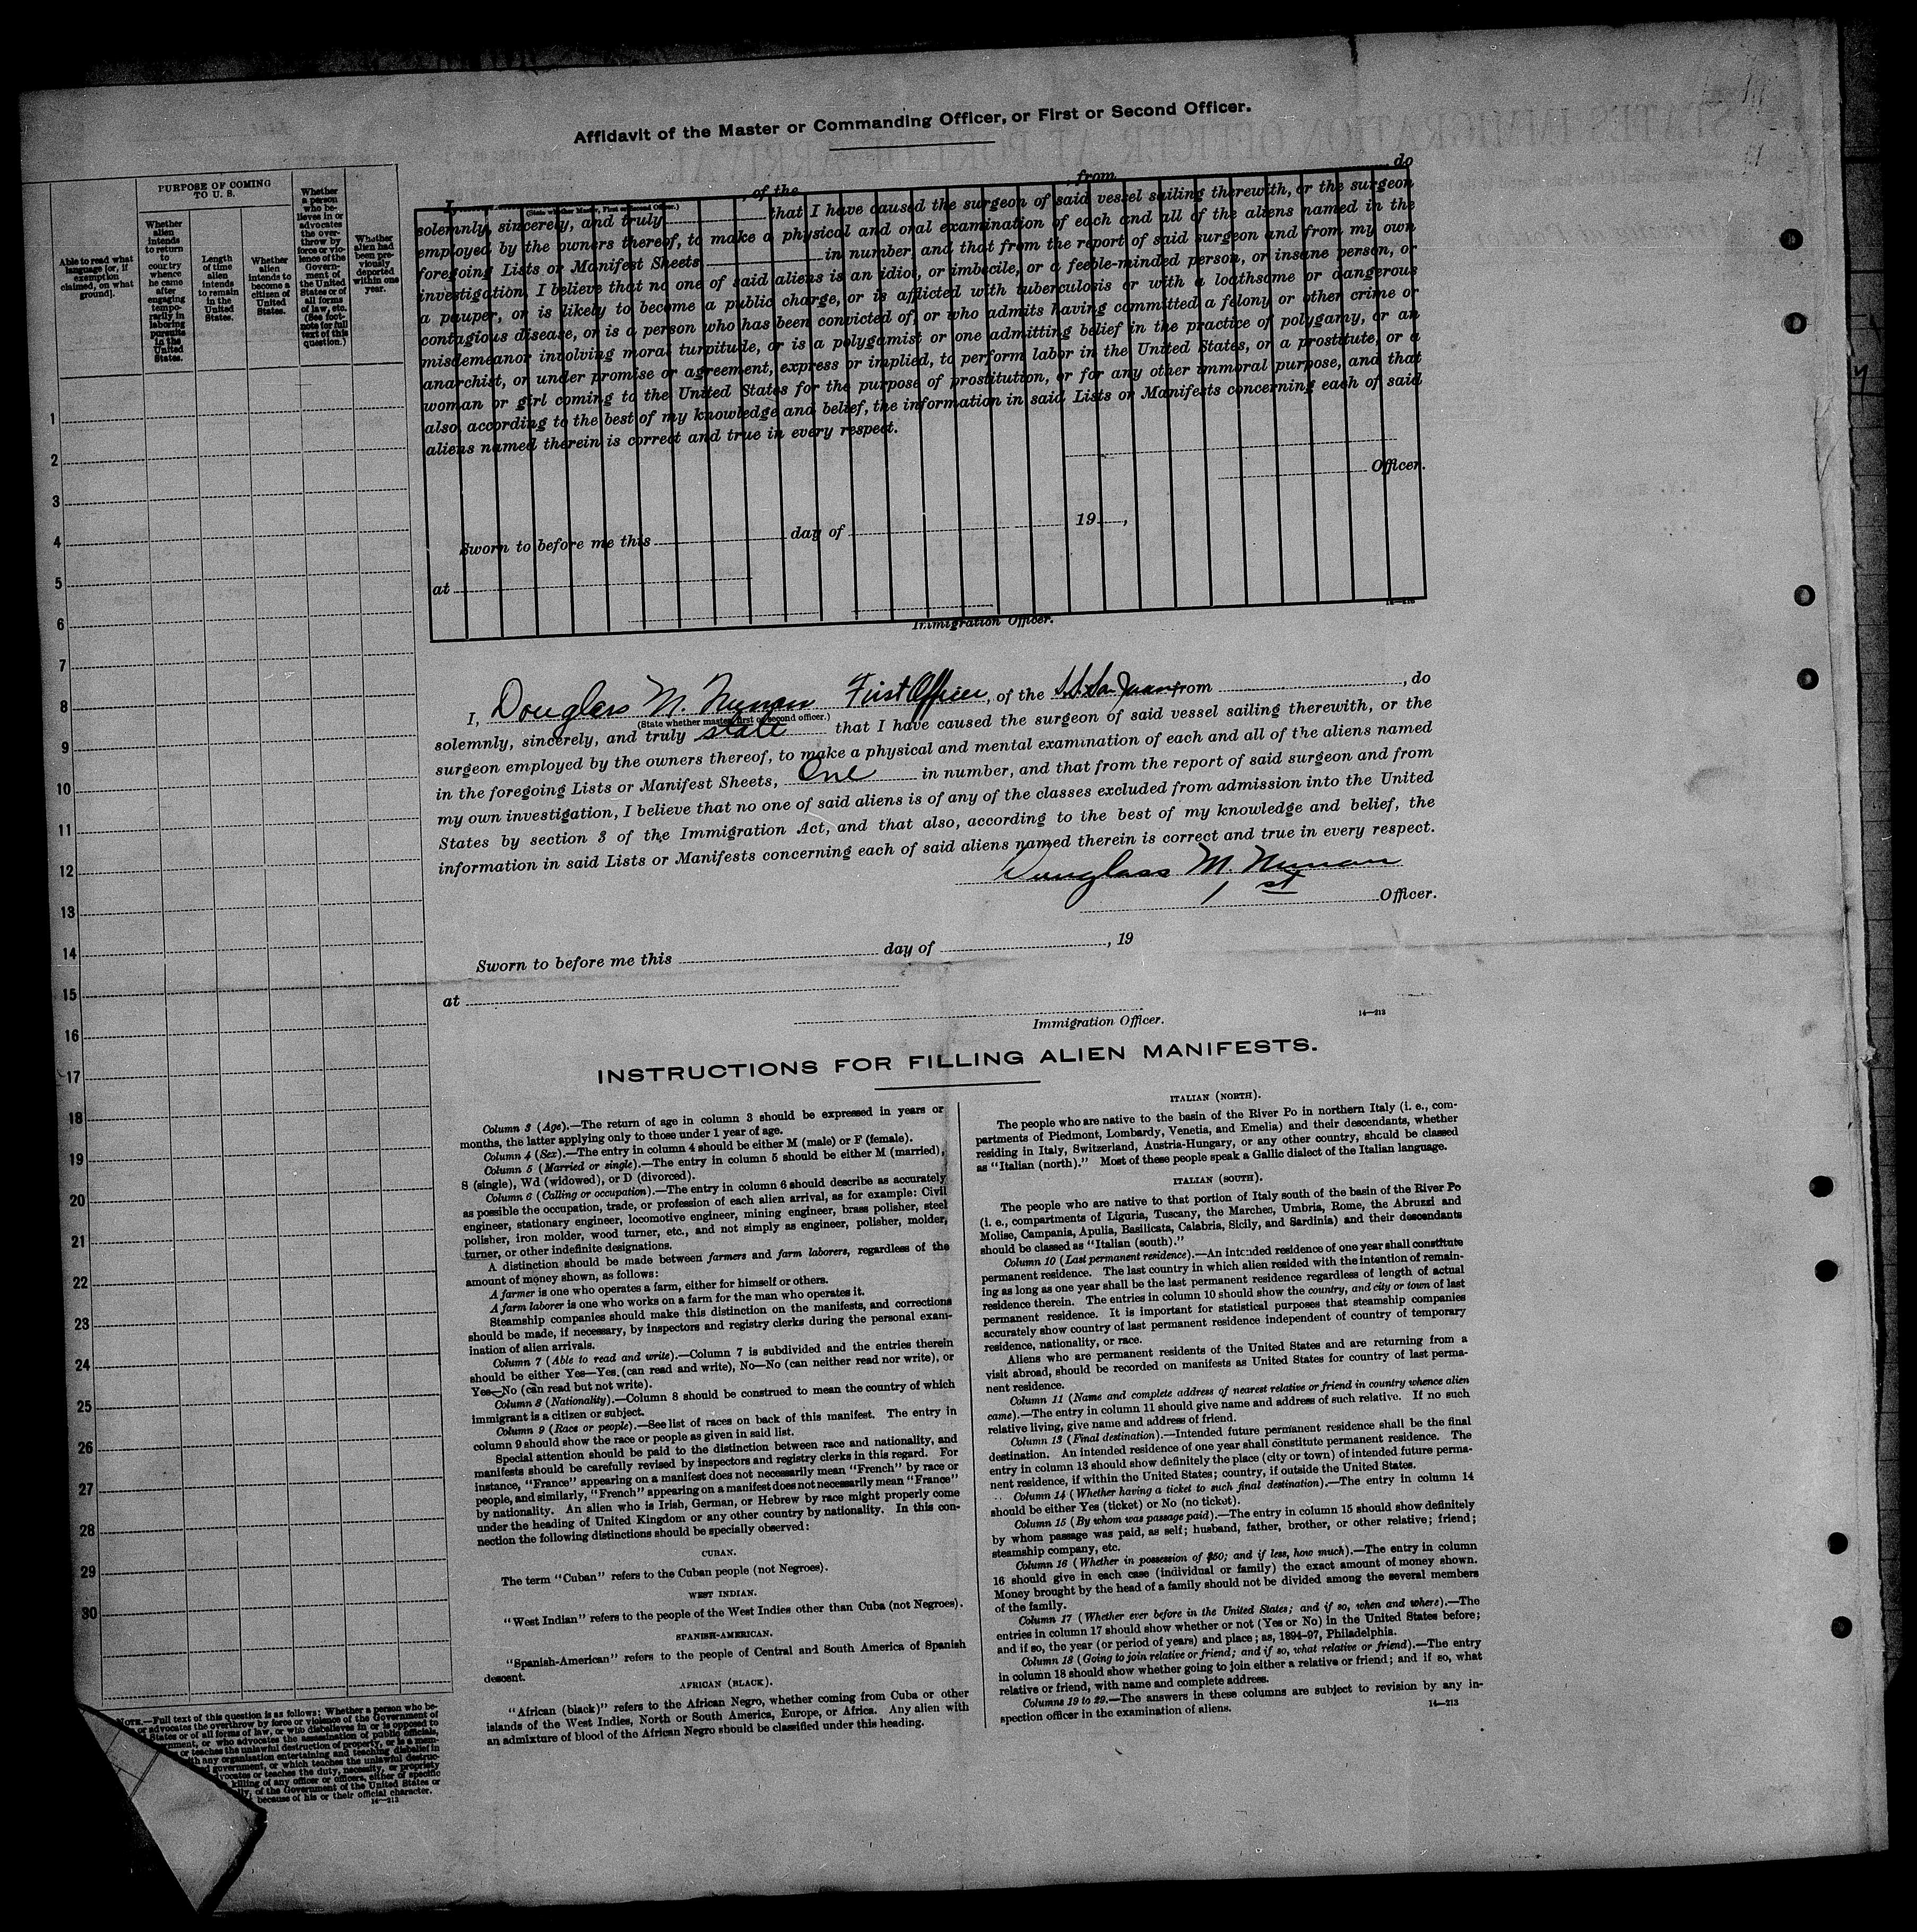 Affidavit of the Master or Commanding Officer, or First or Second Officer.
I, of the from do
(State whether Master, First or Second Officer.)
solemnly, sincerely, and truly that I have caused the surgeon of said vessel sailing therewith, or the surgeon
employed by the owners thereof, to make a physical and oral examination of each and all of the aliens named in the
foregoing Lists or Manifest Sheets in number, and that from the report of said surgeon and from my own
investigation, I believe that no one of said aliens is an idiot, or imbecile, or a feeble-minded person, or insane person, or
a pauper, or is likely to become a public charge, or is afflicted with tuberculosis or with a loathsome or dangerous
contagious disease, or is a person who has been convicted of, or who admits having committed a felony or other crime or
misdemeanor involving moral turpitude, or is a polygamist or one admitting belief in the practice of polygamy, or an
anarchist, or under promise or agreement, express or implied, to perform labor in the United States, or a prostitute, or a
woman or girl coming to the United States for the purpose of prostitution, or for any other immoral purpose, and that
also, according to the best of my knowledge and belief, the information in said Lists or Manifests concerning each of said
aliens named therein is correct and true in every respect.
Officer.
Sworn to before me this day of 19 ,
at
14—213
Immigration Officer.
PURPOSE OF COMING
TO U. S.
Able to read what
language [or, if
exemption
claimed, on what
ground].
Whether
alien
intends
to return
to
country
whence
he came
after
engaging
tempo-
rarily in
laboring
pursuits
in the
United
States.
Length
of time
alien
intends
to remain
in the
United
States.
Whether
alien
intends to
become a
citizen of
United
States.
Whether
a person
who be-
lieves in or
advocates
the over-
throw by
force or vio-
lence of the
Govern-
ment of
the United
States or of
all forms
of law, etc.
(See foot-
note for full
text of this
question.)
Whether
alien had
been pre-
viously
deported
within one
year.
1
2
3
4
5
6
7
8
9
10
11
12
13
14
15
16
17
18
19
20
21
22
23
24
25
26
27
28
29
30
I, Douglass M. Nunan First Officer, of the S.S. San Juan from , do
(State whether master, first or second officer.)
solemnly, sincerely, and truly state that I have caused the surgeon of said vessel sailing therewith, or the
surgeon employed by the owners thereof, to make a physical and mental examination of each and all of the aliens named
in the foregoing Lists or Manifest Sheets, One in number, and that from the report of said surgeon and from
my own investigation, I believe that no one of said aliens is of any of the classes excluded from admission into the United
States by section 3 of the Immigration Act, and that also, according to the best of my knowledge and belief, the
information in said Lists or Manifests concerning each of said aliens named therein is correct and true in every respect.
Douglass M. Nunan
1 st Officer.
Sworn to before me this day of , 19
at
Immigration Officer.
14—213
INSTRUCTIONS FOR FILLING ALIEN MANIFESTS.
Column 3 (Age).—The return of age in column 3 should be expressed in years or
months, the latter applying only to those under 1 year of age.
Column 4 (Sex).—The entry in column 4 should be either M (male) or F (female).
Column 5 (Married or single).—The entry in column 5 should be either M (married),
S (single), Wd (widowed), or D (divorced).
Column 6 (Calling or occupation).—The entry in column 6 should describe as accurately
as possible the occupation, trade, or profession of each alien arrival, as for example: Civil
engineer, stationary engineer, locomotive engineer, mining engineer, brass polisher, steel
polisher, iron molder, wood turner, etc., and not simply as engineer, polisher, molder,
turner, or other indefinite designations.
A distinction should be made between farmers and farm laborers, regardless of the
amount of money shown, as follows:
A farmer is one who operates a farm, either for himself or others.
A farm laborer is one who works on a farm for the man who operates it.
Steamship companies should make this distinction on the manifests, and corrections
should be made, if necessary, by inspectors and registry clerks during the personal exam-
ination of alien arrivals.
Column 7 (Able to read and write).—Column 7 is subdivided and the entries therein
should be either Yes—Yes (can read and write), No—No (can neither read nor write), or
Yes—No (can read but not write).
Column 8 (Nationality).—Column 8 should be construed to mean the country of which
immigrant is a citizen or subject.
Column 9 (Race or people).—See list of races on back of this manifest. The entry in
column 9 should show the race or people as given in said list.
Special attention should be paid to the distinction between race and nationality, and
manifests should be carefully revised by inspectors and registry clerks in this regard. For
instance, "France" appearing on a manifest does not necessarily mean "French" by race or
people, and similarly, "French" appearing on a manifest does not necessarily mean "France"
by nationality. An alien who is Irish, German, or Hebrew by race might properly come
under the heading of United Kingdom or any other country by nationality. In this con-
nection the following distinctions should be specially observed:
CUBAN.
The term "Cuban" refers to the Cuban people (not Negroes).
WEST INDIAN.
"West Indian" refers to the people of the West Indies other than Cuba (not Negroes).
SPANISH-AMERICAN.
"Spanish-American" refers to the people of Central and South America of Spanish
descent.
AFRICAN (BLACK).
"African (black)" refers to the African Negro, whether coming from Cuba or other
islands of the West Indies, North or South America, Europe, or Africa. Any alien with
an admixture of blood of the African Negro should be classified under this heading.
ITALIAN (NORTH).
The people who are native to the basin of the River Po in northern Italy (i. e., com-
partments of Piedmont, Lombardy, Venetia, and Emelia) and their descendants, whether
residing in Italy, Switzerland, Austria-Hungary, or any other country, should be classed
as "Italian (north)." Most of these people speak a Gallic dialect of the Italian language.
ITALIAN (SOUTH).
The people who are native to that portion of Italy south of the basin of the River Po
(i. e., compartments of Liguria, Tuscany, the Marches, Umbria, Rome, the Abruzzi and
Molise, Campania, Apulia, Basilicata, Calabria, Sicily, and Sardinia) and their descendants
should be classed as "Italian (south)."
Column 10 (Last permanent residence).—An intended residence of one year shall constitute
permanent residence. The last country in which alien resided with the intention of remain-
ing as long as one year shall be the last permanent residence regardless of length of actual
residence therein. The entries in column 10 should show the country, and city or town of last
permanent residence. It is important for statistical purposes that steamship companies
accurately show country of last permanent residence independent of country of temporary
residence, nationality, or race.
Aliens who are permanent residents of the United States and are returning from a
visit abroad, should be recorded on manifests as United States for country of last perma-
nent residence.
Column 11 (Name and complete address of nearest relative or friend in country whence alien
came).—The entry in column 11 should give name and address of such relative. If no such
relative living, give name and address of friend.
Column 13 (Final destination).—Intended future permanent residence shall be the final
destination. An intended residence of one year shall constitute permanent residence. The
entry in column 13 should show definitely the place (city or town) of intended future perma-
nent residence, if within the United States; country, if outside the United States.
Column 14 (Whether having a ticket to such final destination).—The entry in column 14
should be either Yes (ticket) or No (no ticket).
Column 15 (By whom was passage paid).—The entry in column 15 should show definitely
by whom passage was paid, as self; husband, father, brother, or other relative; friend;
steamship company, etc.
Column 16 (Whether in possession of $50; and if less, how much).—The entry in column
16 should give in each case (individual or family) the exact amount of money shown.
Money brought by the head of a family should not be divided among the several members
of the family.
Column 17 (Whether ever before in the United States; and if so, when and where).—The
entries in column 17 should show whether or not (Yes or No) in the United States before;
and if so, the year (or period of years) and place; as, 1894-97, Philadelphia.
Column 18 (Going to join relative or friend; and if so, what relative or friend).—The entry
in column 18 should show whether going to join either a relative or friend; and if so, what
relative or friend, with name and complete address.
Columns 19 to 29.—The answers in these columns are subject to revision by any in-
spection officer in the examination of aliens.
14—213
NOTE.—Full text of this question is as follows: Whether a person who be-
or advocates the overthrow by force or violence of the Government of
States or of all forms of law, or who disbelieves in or is opposed to
ernment, or who advocates the assassination of public officials,
or teaches the unlawful destruction of property, or is a mem-
ith any organization entertaining and teaching disbelief in
d government, or which teaches the unlawful destruc-
vocates or teaches the duty, necessity, or propriety
killing of any officer or officers, either of specific
lly, of the Government of the United States or
because of his or their official character.
14—213